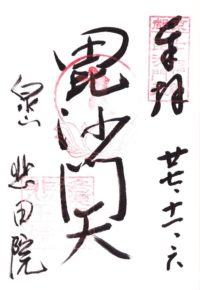 奉拝
廿七、十一、六
毘沙門天
泉山
悲田院